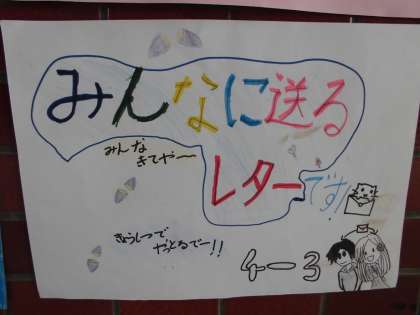 みんなに送る
レターです!
みんな
きてやー
きょうしつで
やっとるでー!!
4-3